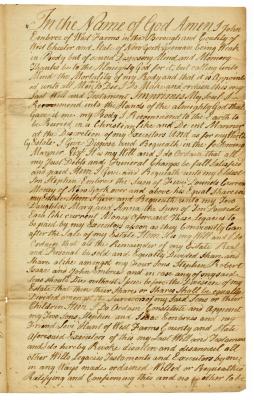 In the Name of God Amen I John
Embree of West Farms in the Borough and County of
West Chester and State of New York Yeoman being Weak
in Body but of sound Disposing Mind and Memory
Thanks be to the Almighty God for it but calling unto
Mind the Mortality of my Body and that it is Appointed
unto all Men to Die I do Make and ordain this my
last Will and Testament Imprimis my Soul I
Recommend into the Hands of the almighty God that
gave it me my Body I Recommend to the Earth to
be Buried in a Christian like and Decent Manner
at the Discretion of my Executors AND as for my Worldly
Estate I Give Dispose and Bequeath in the following
Manner Viz It is my Will and I do Ordain that all
my Just Debts and Funeral Charges be full satisfied
and paid Item I Give and Bequeath unto my Eldest
Son Stephen the Sum of Pounds Current
Money of New York over and above his Equal share in
my Estate Item I Give and Bequeath unto my Two
Daughters Mary and the Sum of Ten Pounds
Each like current Money Aforesaid These legacies to
be paid by my Executors as soon as they Conveniently Can
after the Sale of my Estate Item It is my Will and I do
Ordain that all the Remainder of my Estate Real
and Personal be sold and Equally Divided Share and
Share alike amongst my Four Sons Stephen Robert
Isaac and John Embree and in case any of my said
Sons should Die without Issue before the Division of my
Estate that then their Share or Shares shall be equally
Divided amongst the Survivors of my said Sons or their
Children Item I do Ordain Constitute and Appoint
my Two Sons Stephen and Embree and my
Friend Hunt of West Farms County and State
Aforesaid Executors of this my last Will and Testament
and I do hereby Revoke disallow and disannul all
other Wills Legacies Testaments and Executors by me
in any Ways made ordained Willed or Bequeathed
Ratifying and Confirming this and no other to be